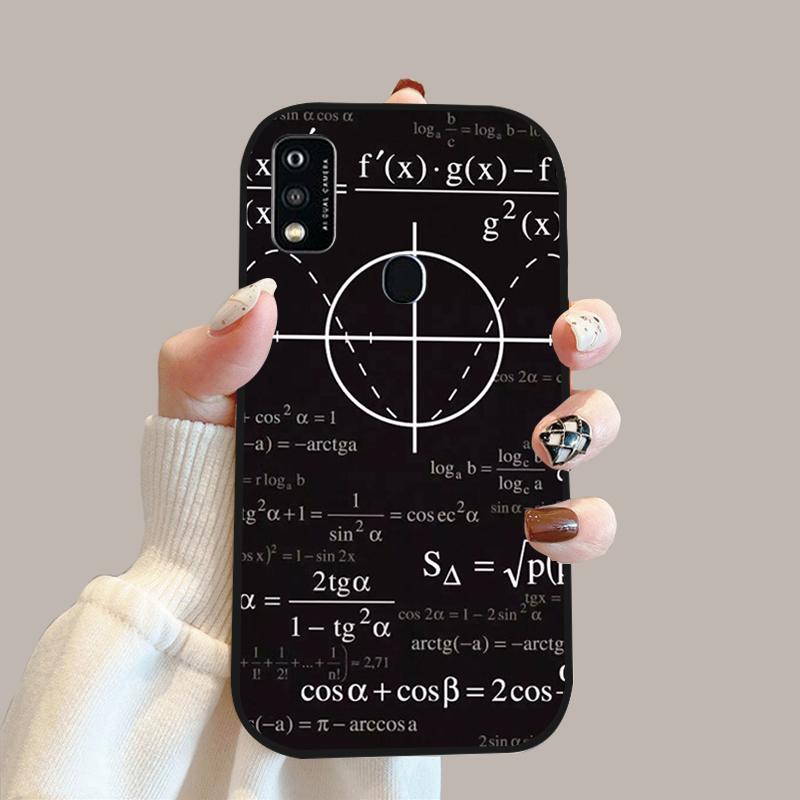 sin α cos α
logₐ b/c = logₐ b – lo
AI DUAL CAMERA
(x
(x
′
= f′(x)·g(x) – f
g²(x)
cos 2α = c
+ cos² α = 1
–a) = –arctga
logₐ b = log꜀ b / log꜀ a
= r logₐ b
tg²α+1 = 1/sin² α = cosec²α
sin α
os x)² = 1 – sin 2x
S△ = √p(p
α = 2tgα / 1 – tg²α
tgx =
cos 2α = 1 – 2 sin² α
arctg(–a) = –arctg
+ 1/1! + 1/2! + ... + 1/n!) ≈ 2,71
cos α + cos β = 2cos
s(–a) = π – arccos a
2 sin α